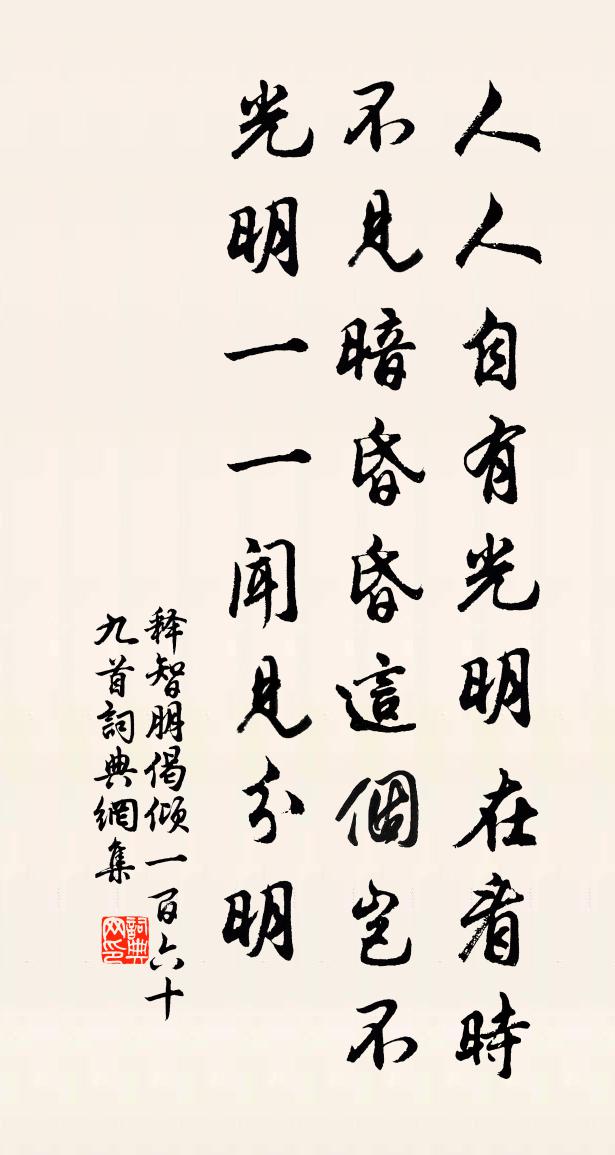 人人自有光明在看時
不見暗昏昏這個豈不
光明一一聞見分明
释智朋偈倾一百六十
九首詞典網集
詞典网印